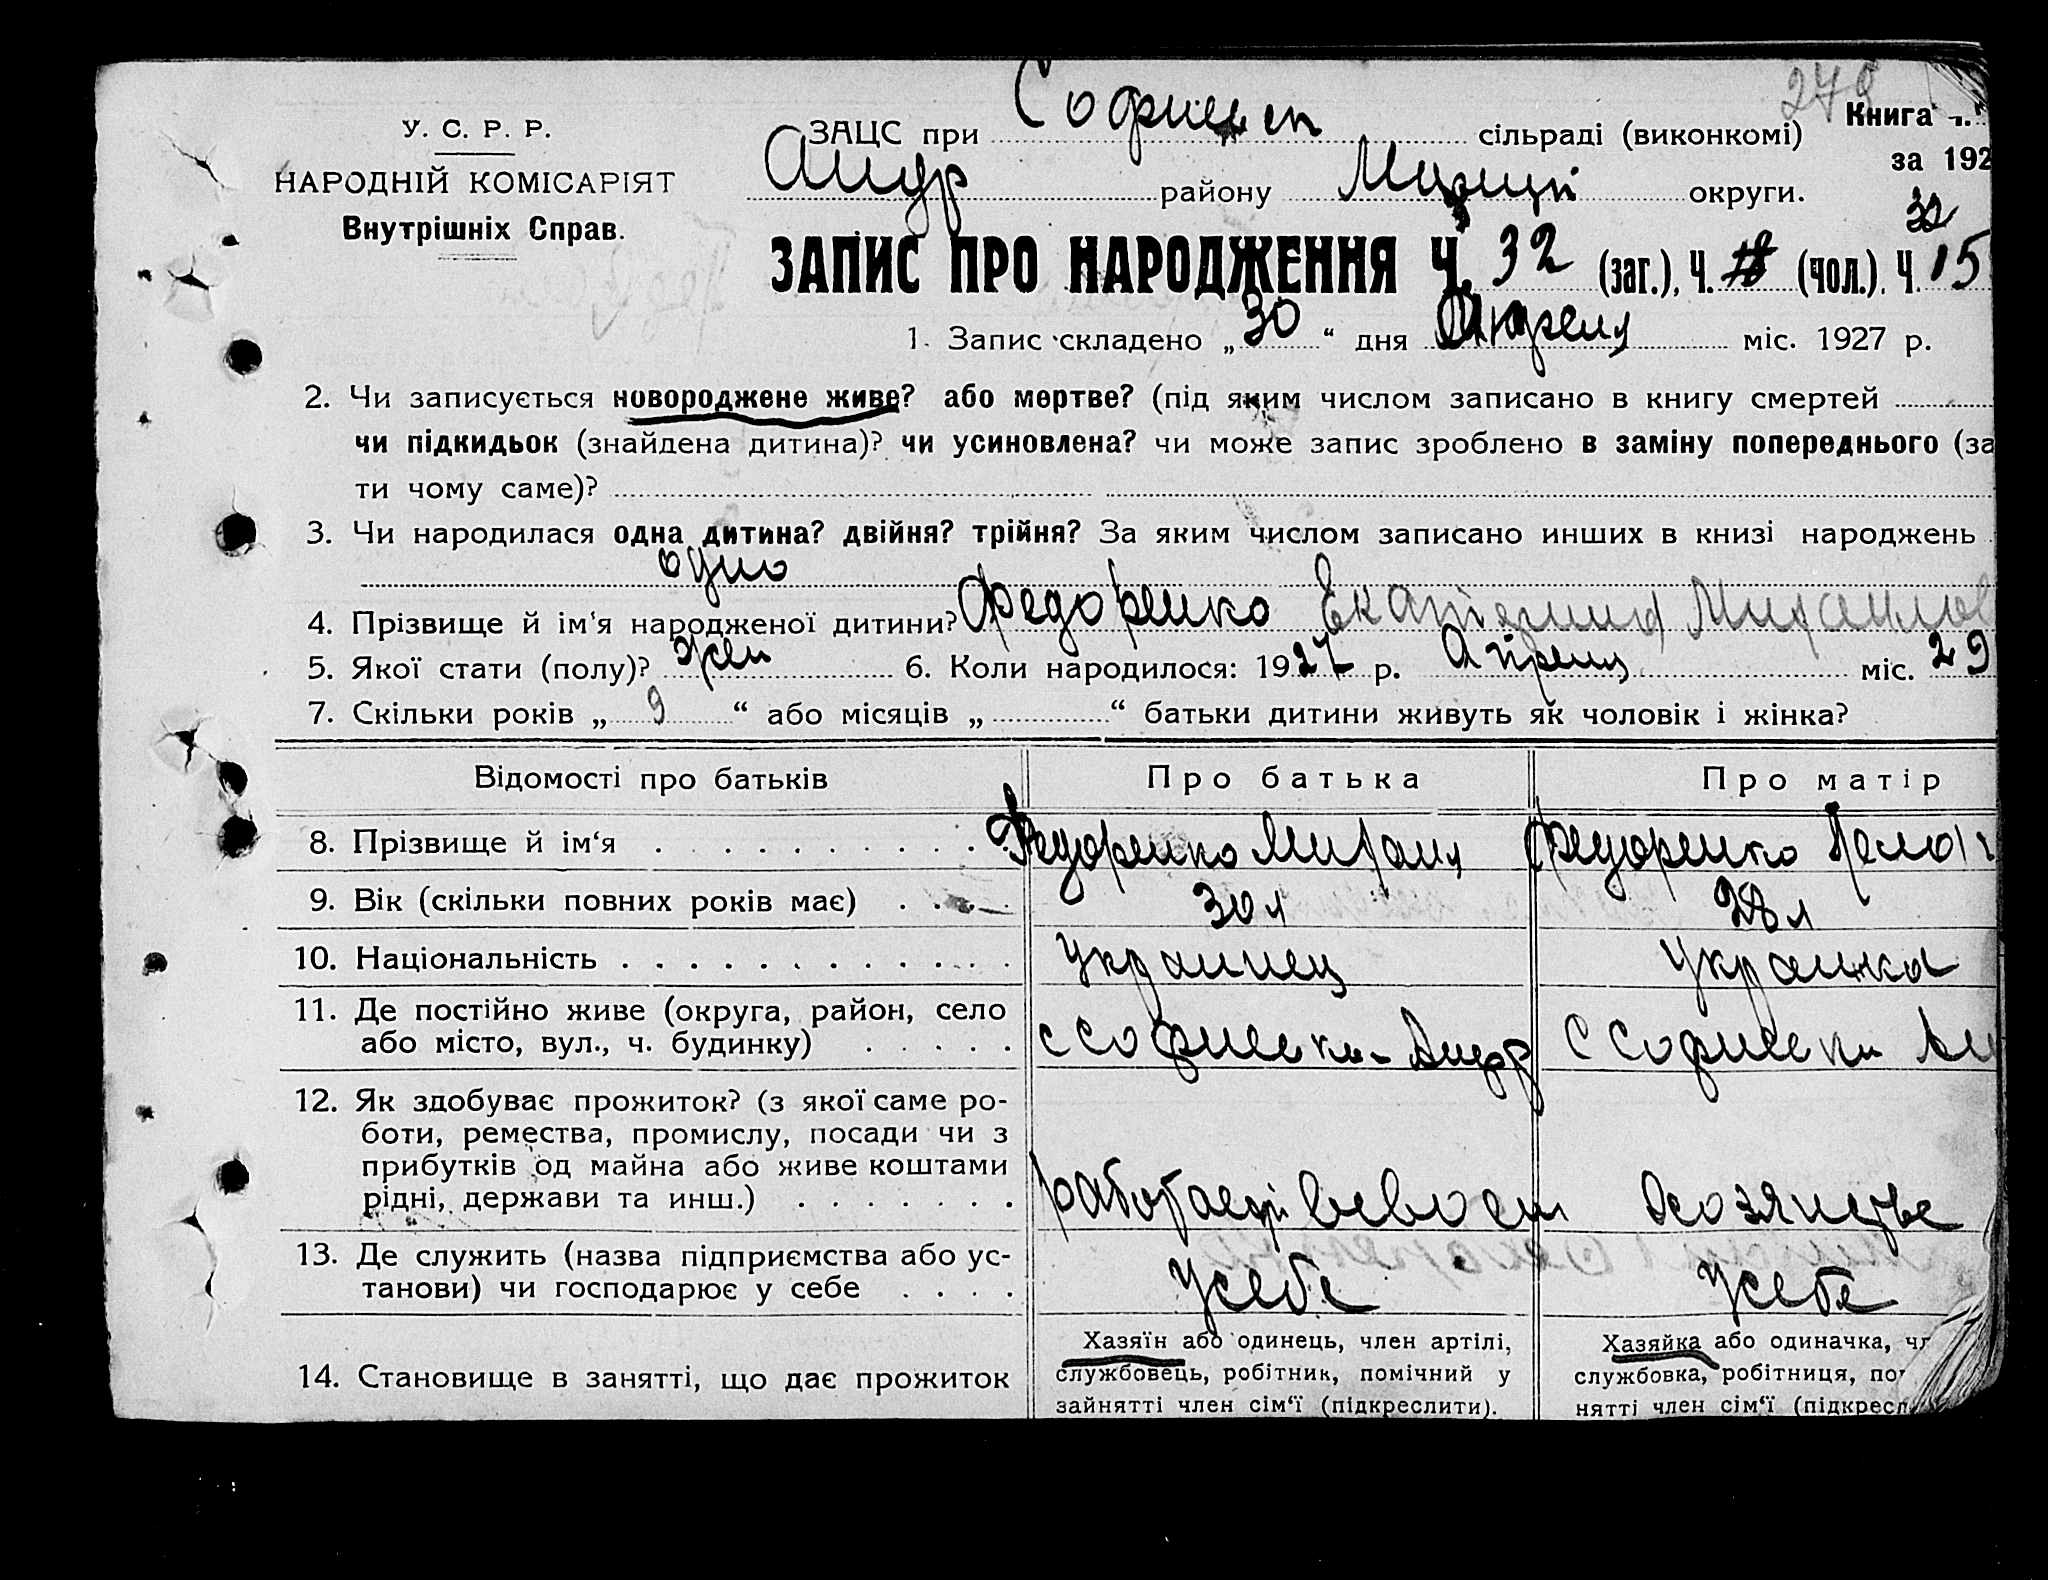 278
У. С. Р. Р.
НАРОДНІЙ КОМІСАРІЯТ
Внутрішніх Справ.
ЗАЦС при Софиевск сільраді (виконкомі)
Книга
за 192
району округи.
32
ЗАПИС ПРО НАРОДЖЕННЯ Ч. 32 (заг.), Ч. 18 (чол.). Ч. 15
1. Запис складено „ 30 “ дня Апреля міс. 1927 р.
2. Чи записується новороджене живе? або мертве? (під яким числом записано в книгу смертей
чи підкидьок (знайдена дитина)? чи усиновлена? чи може запис зроблено в заміну попереднього (за
ти чому саме)?
3. Чи народилася одна дитина? двійня? трійня? За яким числом записано инших в книзі народжень
одно
4. Прізвище й ім‘я народженої дитини? Федоренко Екатерина Михайлов
5. Якої стати (полу)? жен 6. Коли народилося: 1927 р. Апреля міс. 29
7. Скільки років „ 9 “ або місяців „ “ батьки дитини живуть як чоловік і жінка?
Відомості про батьків Про батька Про матір
8. Прізвище й ім‘я Федоренко Михаил Федоренко
9. Вік (скільки повних років має) 30 л 28 л
10. Національність украинец украинка
11. Де постійно живе (округа, район, село
або місто, вул., ч. будинку) с Софиевка с Софиевка
12. Як здобуває прожиток? (з якої саме ро-
боти, ремества, промислу, посади чи з
прибутків од майна або живе коштами
рідні, держави та инш.)
13. Де служить (назва підприємства або ус-
танови) чи господарює у себе у себе у себе
14. Становище в занятті, що дає прожиток
Хазяїн або одинець, член артілі,
службовець, робітник, помічний у
зайнятті член сім‘ї (підкреслити).
Хазяйка або одиначка, чл
службовка, робітниця, по
нятті член сім‘ї (підкресл